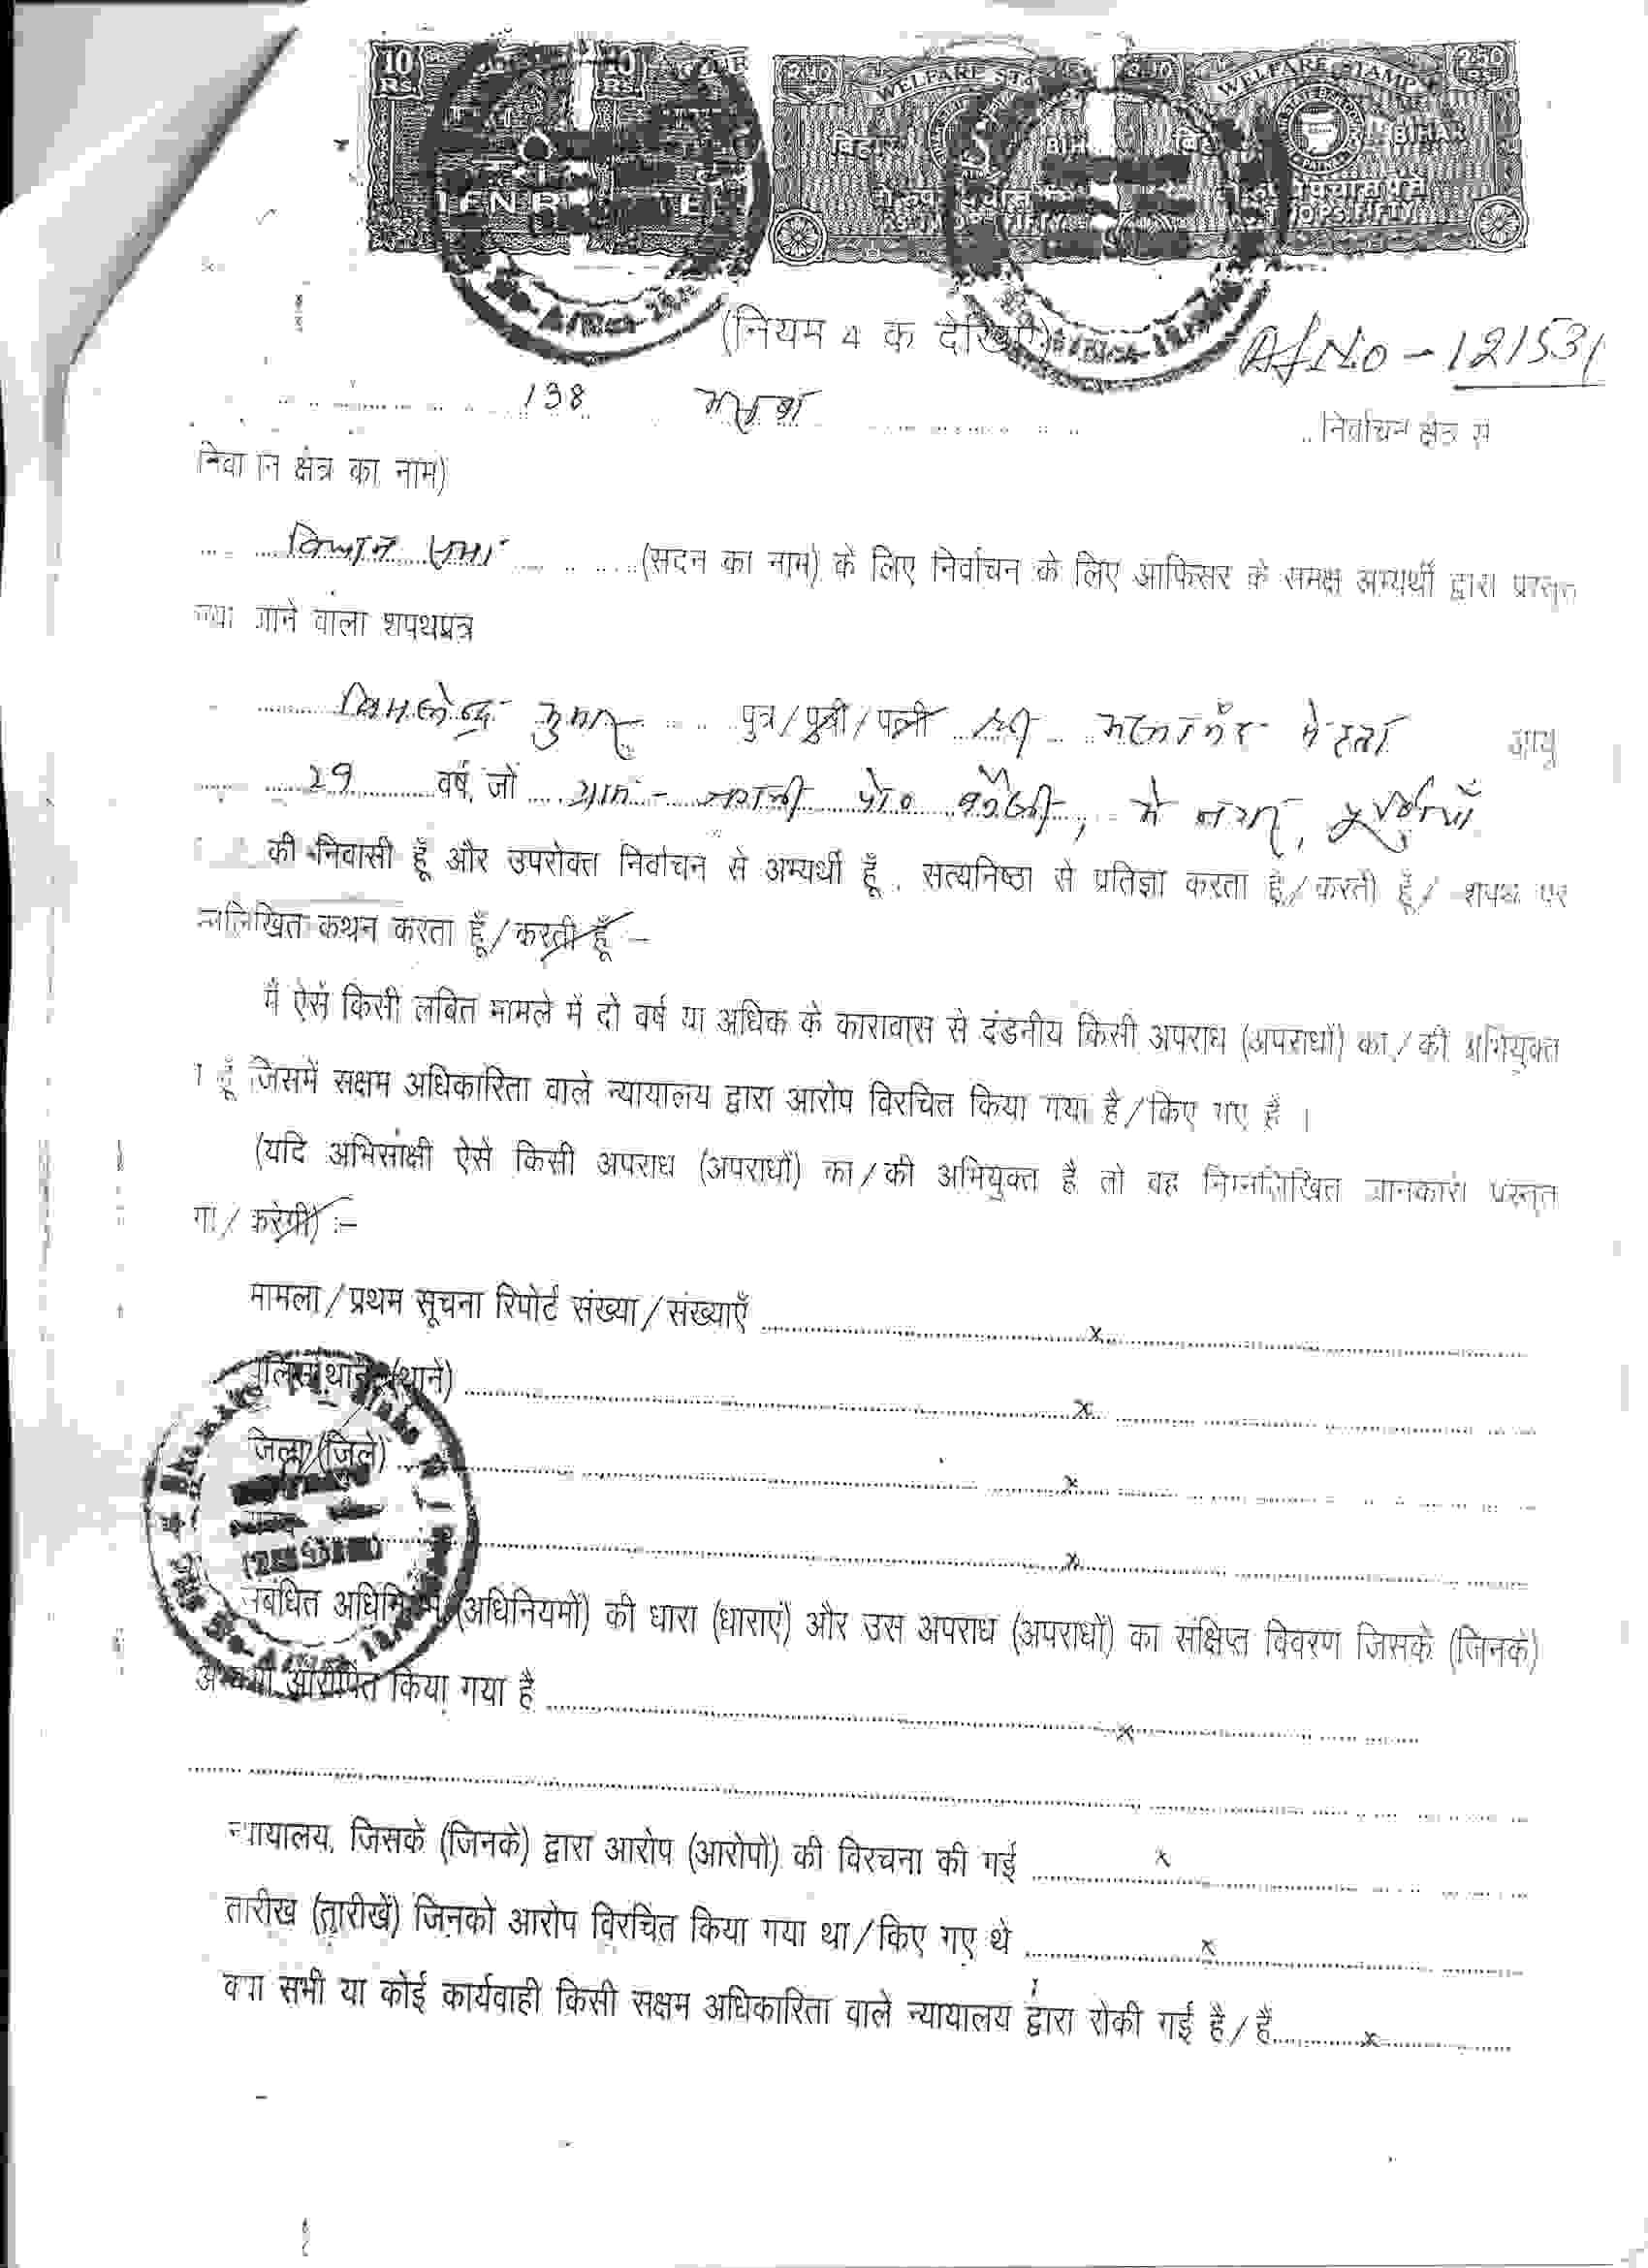 10 Rs. 10 Rs.
WELFARE STAMP 2.50
बिहार BIHAR
(नियम 4 क देखिए)
Af No - 121531
138 निर्वाचन क्षेत्र से
क्षेत्र का नाम)
विधान सभा (सदन का नाम) के लिए निर्वाचन के लिए आफिसर के समक्ष अभ्यर्थी द्वारा प्रस्तुत
जाने वाला शपथपत्र
कुमार पुत्र/पुत्री/पत्नी श्री मेहता आयु
29 वर्ष, जो ग्राम - पो०
की निवासी हूँ और उपरोक्त निर्वाचन से अभ्यर्थी हूँ, सत्यनिष्ठा से प्रतिज्ञा करता हूँ/करती हूँ/ शपथ पर
कथन करता हूँ/करती हूँ :-
मैं ऐसे किसी लंबित मामले में दो वर्ष या अधिक के कारावास से दंडनीय किसी अपराध (अपराधों) का/की अभियुक्त
हूँ जिसमें सक्षम अधिकारिता वाले न्यायालय द्वारा आरोप विरचित किया गया है/किए गए हैं ।
(यदि अभिसाक्षी ऐसे किसी अपराध (अपराधों) का/की अभियुक्त है तो वह निम्नलिखित जानकारी प्रस्तुत
करेगी) :-
मामला/प्रथम सूचना रिपोर्ट संख्या/संख्याएँ x
(थाने) x
जिला (जिले) x
x
संबंधित (अधिनियमों) की धारा (धाराएं) और उस अपराध (अपराधों) का संक्षिप्त विवरण जिसके (जिनके)
आरोपित किया गया है x
न्यायालय, जिसके (जिनके) द्वारा आरोप (आरोपों) की विरचना की गई x
तारीख (तारीखें) जिनको आरोप विरचित किया गया था/किए गए थे x
क्या सभी या कोई कार्यवाही किसी सक्षम अधिकारिता वाले न्यायालय द्वारा रोकी गई है/हैं x